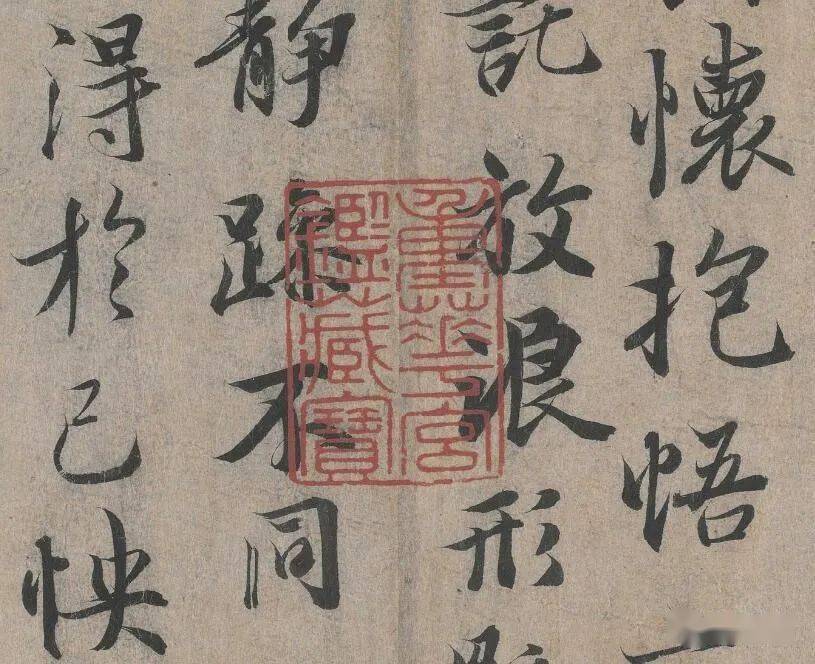 懷抱悟
託放浪形
靜躁不同
得於己怏
重華宮
鑑藏寶